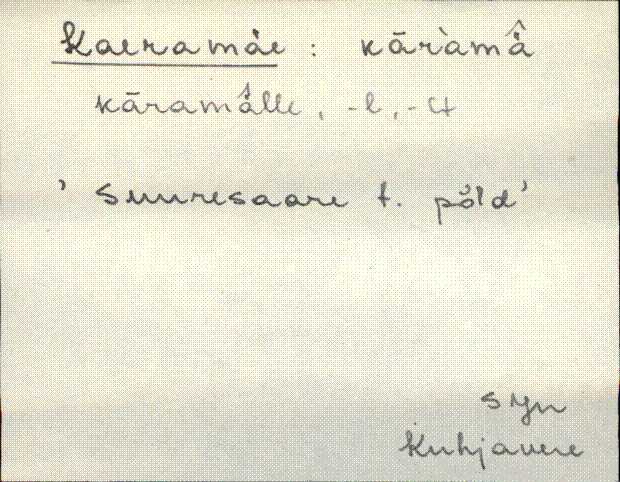 Kaeramäe : kāràmä̂
kāramä̂lle, -l, -lt
' Suuresaare t. põld'
SJn
Kuhjavere